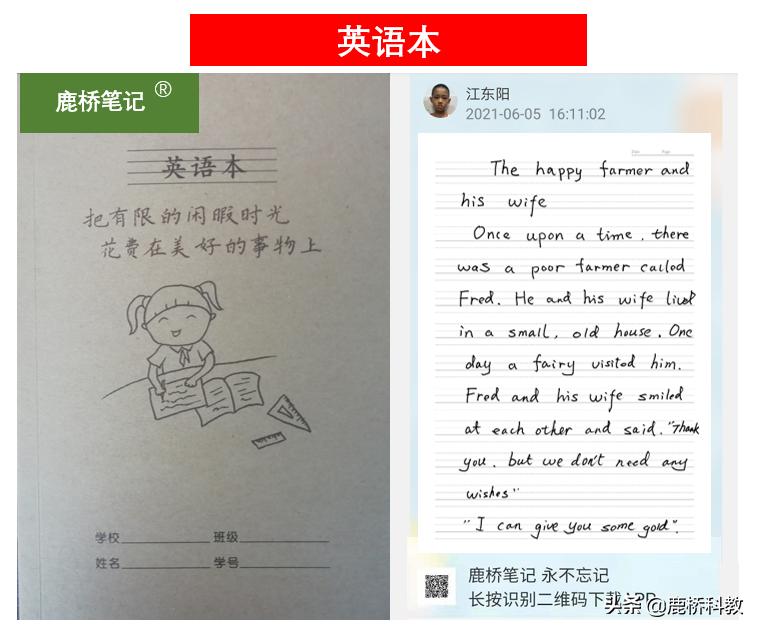 英语本
鹿桥笔记 ®
英语本
把有限的闲暇时光
花费在美好的事物上
学校 班级
姓名 学号
江东阳
2021-06-05 16:11:02
The happy farmer and
his wife
Once upon a time. there
was a poor farmer called
Fred. He and his wife lived
in a small, old house. One
day a fairy visited him.
Fred and his wife smiled
at each other and said. "Thank
you. but we don't need any
wishes"
"I can give you some gold".
鹿桥笔记 永不忘记
长按识别二维码下载APP
头条 @鹿桥科教